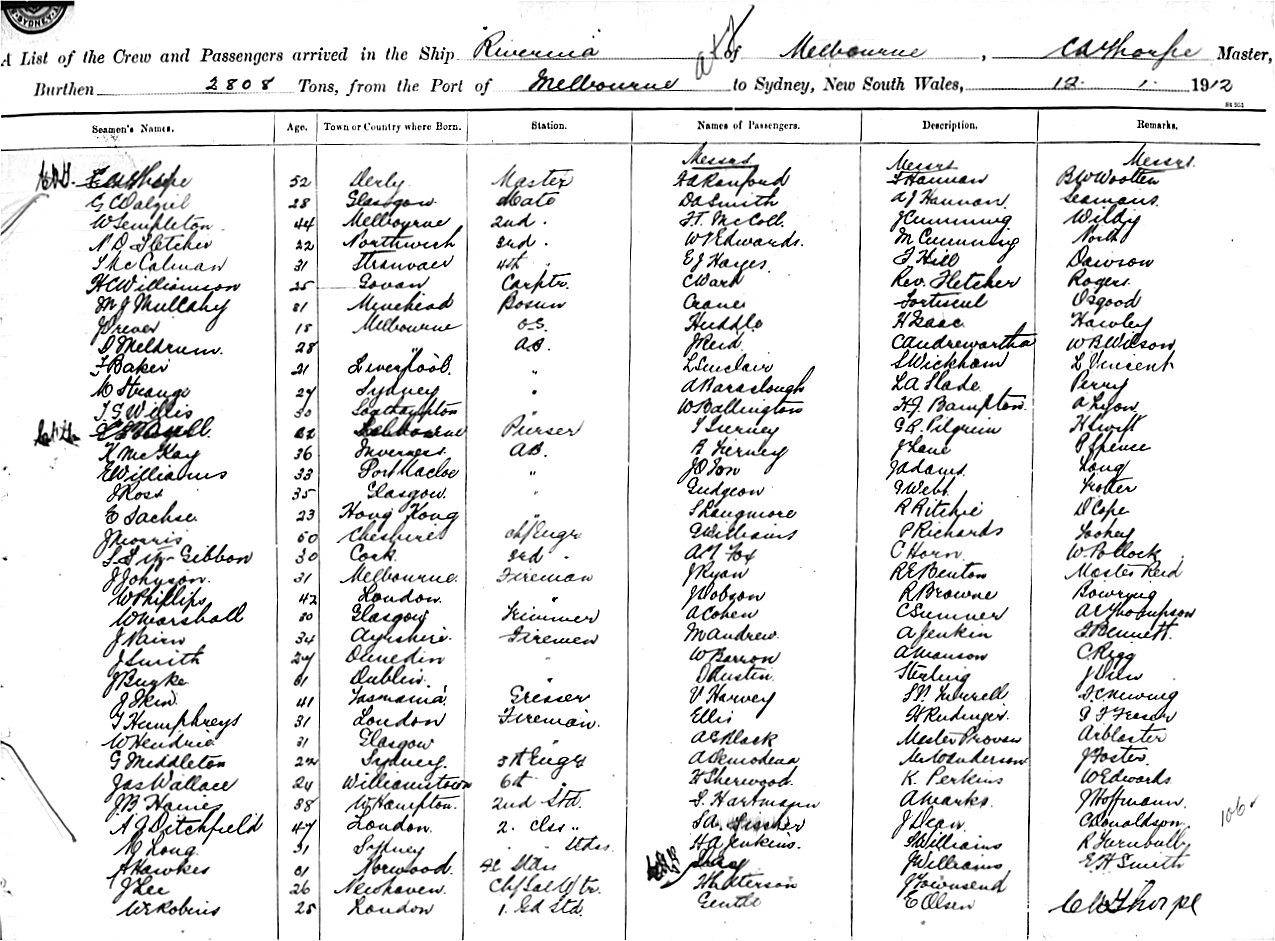 SYDNEY
A List of the Crew and Passengers arrived in the Ship Riverina of Melbourne, C A Thorpe Master,
Burthen 2808 Tons, from the Port of Melbourne to Sydney, New South Wales, 12 . 1 . 1912
Seamen's Names. Age. Town or Country where Born. Station. Names of Passengers. Description. Remarks.
Messrs Messrs Messrs.
52 Derby Master F A Ranford F Hannan B W Wootten
G C Dalziel 28 Glasgow Mate D A Smith A J Hannan Seamans
W Templeton 44 Melbourne 2nd " McColl J Cumming Wildy
N D Fletcher 22 Northwich 3rd " W F Edwards. M Cumming North
J McCalman 31 Stranraer 4th " E J Hayes F Hill Dawson
H C Williamson 25 Govan Carptr. C Ward Rev. Fletcher Rogers
M J Mullahy 31 Minehead Bosun Crane Osgood
J Drever 18 Melbourne O.S. Huddle H Isaac Hawley
D Meldrum. 28 " A B. J Reid C Andrewartha W B Wilson
F Baker 21 Liverpool. " L Sinclair S Wickham L Vincent
M Strange 27 Sydney " A Baraclough L A Slade Perry
T G Willis 30 Southampton " W Ballington H J Bampton A Lyon
Melbourne Purser T Tierney G R Pilgrim H Swift
K McKay 36 Inverness A B. B Tierney J Lane P Spence
E Williams 33 Port Macloe " J D Ion J Adams Long
J Ross 35 Glasgow " Gudgeon G Webb Trotter
E Sachse 23 Hong Kong " S Langmore R Ritchie D Cope
J Morris 50 Cheshire Chf Engr G Williams P Richards Tookey
Fitz-Gibbon 30 Cork 3rd " A J Fox C Horn W Pollock
J Johnson. 31 Melbourne Fireman J Ryan R E Benton Master Reid
W Phillips 42 London. " J Dobson R Browne Bowring
W Marshall 30 Glasgow Trimmer A Cohen C Sumner A E Thompson
J Nairn 34 Ayrshire Firemen M Andrew A Jenkin Bennett
J Smith 27 Dunedin " W Barron A Manson C Rigg
J Burke 31 Dublin. " D Austin Sterling
J Skin 41 Tasmania Greaser V Harvey Turrell
T Humphreys 31 London Fireman. Ellis Fraser
W Hendrie 31 Glasgow " A E Black Master Provan Arblaster
G Middleton 22 Sydney. 5th Engr A Demodena Anderson J Foster
Jas Wallace 24 Williamstown 6th " H Sherwood. K Perkins W Edwards
J B Haines 38 W Hampton. 2nd Std. S. Hartmann A Marks. J Hoffmann.
A J Ditchfield 47 London 2. Clss " Fischer J Dean C Donaldson
M Long 31 Sydney " " Stdss H A Jenkins. S Williams R Turnbull
A Hawkes 31 Norwood. J Williams E H Smith
J Lee 26 Newhaven Patterson J Townsend
W E Robins 25 London 1. Gd Std. Gentle E Olsen C A Thorpe
106